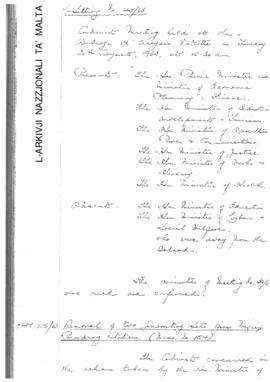 L-ARKIVJI NAZZJONALI TA' MALTA
Sitting No. 40/63
Cabinet Meeting held at the
Auberge d'Aragon Valletta on Tuesday
August, 1963, at 10.30 am
Present: The Hon. Prime Minister and
Minister of Economic
Planning & Finance.
The Hon. Minister of Industrial
Development & Tourism.
The Hon. Minister of Agriculture
Power & Communications.
The Hon. Minister of Justice.
The Hon. Minister of Works &
Housing.
The Hon. Minister of Health.
Absent: The Hon. Minister of Education
The Hon. Minister of Labour
& Social Welfare.
who were away from the
Island.
The minutes of Meeting No. 39/63
were read and confirmed.
Removal of two Generating Sets from
Pumping Station (Memo. No.
The Cabinet concurred in
the action taken by the Hon. Minister of